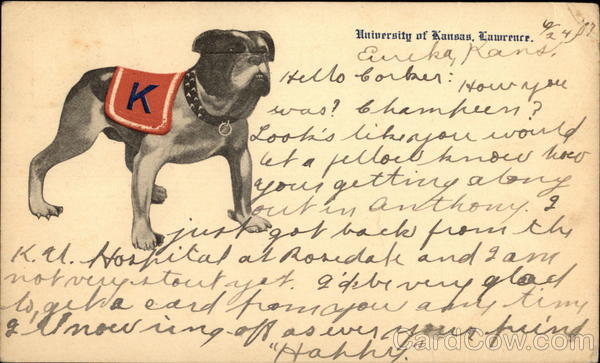 University of Kansas, Lawrence. 6/24/07
Eureka, Kans.
Hello Corker: How you
was? Champeen?
Look's like you would
let a fellow know how
your getting along
out in Anthony. I
K
just got back from the
K.U. Hospital at Rosedale and I am
not very stout yet. I'd be very glad
to get a card from you any time
I'll now ring off as ever your friend
"Happy."
CardCow.com